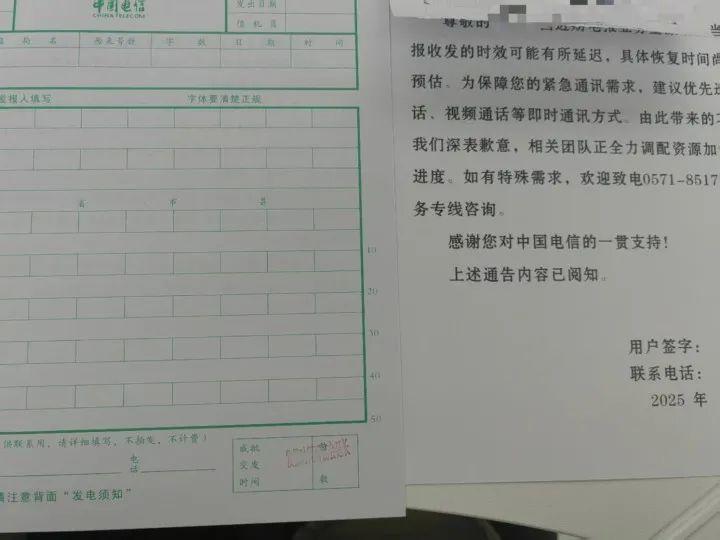 中国电信
CHINA TELECOM
发出日期
值机员
局名 原来号数 字数 日期 时间
报人填写 字体要清楚正规
省 市 县
10
20
30
40
50
供联系用，请详细填写，不拍发，不计费）
电话
或批
交发
时间
份数
请注意背面“发电须知”
尊敬的
报收发的时效可能有所延迟，具体恢复时间尚
预估。为保障您的紧急通讯需求，建议优先选
话、视频通话等即时通讯方式。由此带来的不
我们深表歉意，相关团队正全力调配资源加
进度。如有特殊需求，欢迎致电0571-8517
务专线咨询。
感谢您对中国电信的一贯支持！
上述通告内容已阅知。
用户签字：
联系电话：
2025 年